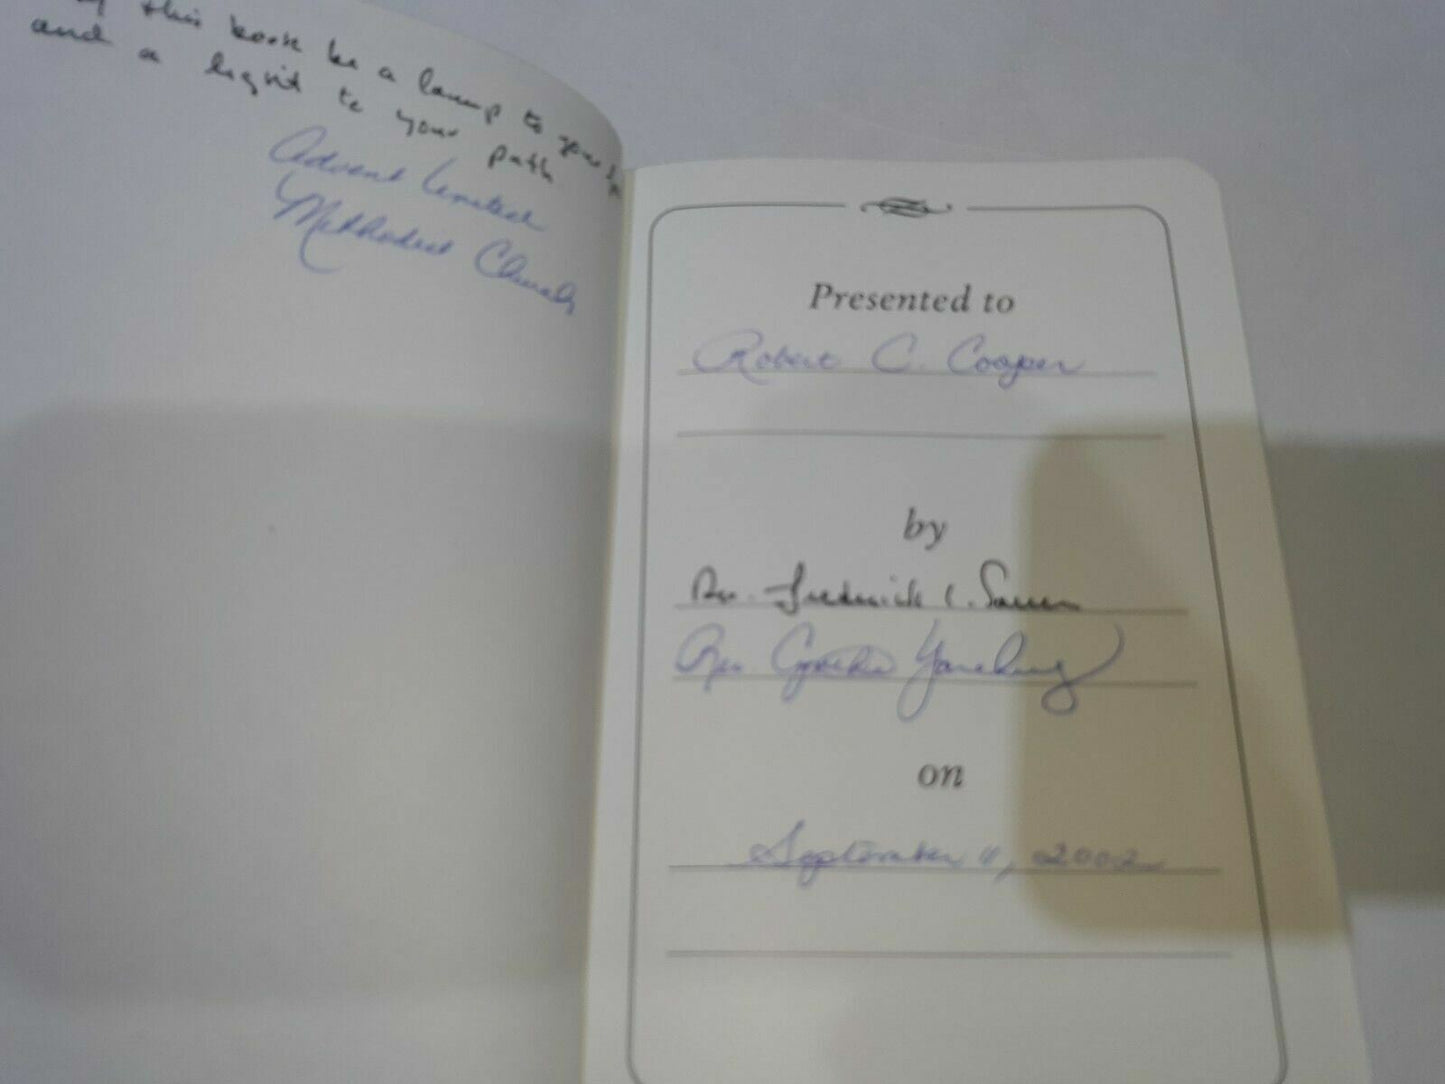 this book be a lamp to your
and a light to your path
Advent United
Methodist Church
Presented to
Robert C. Cooper
by
Rev. Frederick C.
Rev. Cynthia
on
September 11, 2002